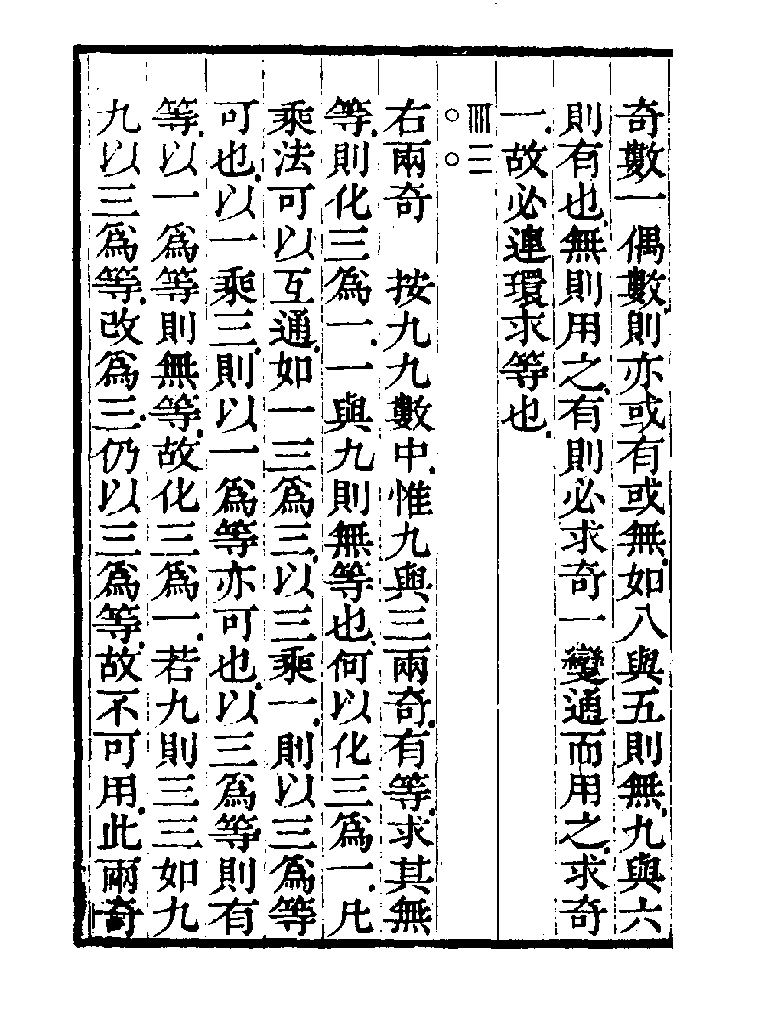 奇數一偶數則亦或有或無如八與五則無九與六
則有也無則用之有則必求奇一變通而用之求奇
一故必連環求等也
𝍨三
○○
右兩奇　按九九數中惟九與三兩奇有等求其無
等則化三爲一一與九則無等也何以化三爲一凡
乘法可以互通如一三爲三以三乘一則以三爲等
可也以一乘三則以一爲等亦可也以三爲等則有
等以一爲等則無等故化三爲一若九則三三如九
九以三爲等改爲三仍以三爲等故不可用此兩奇